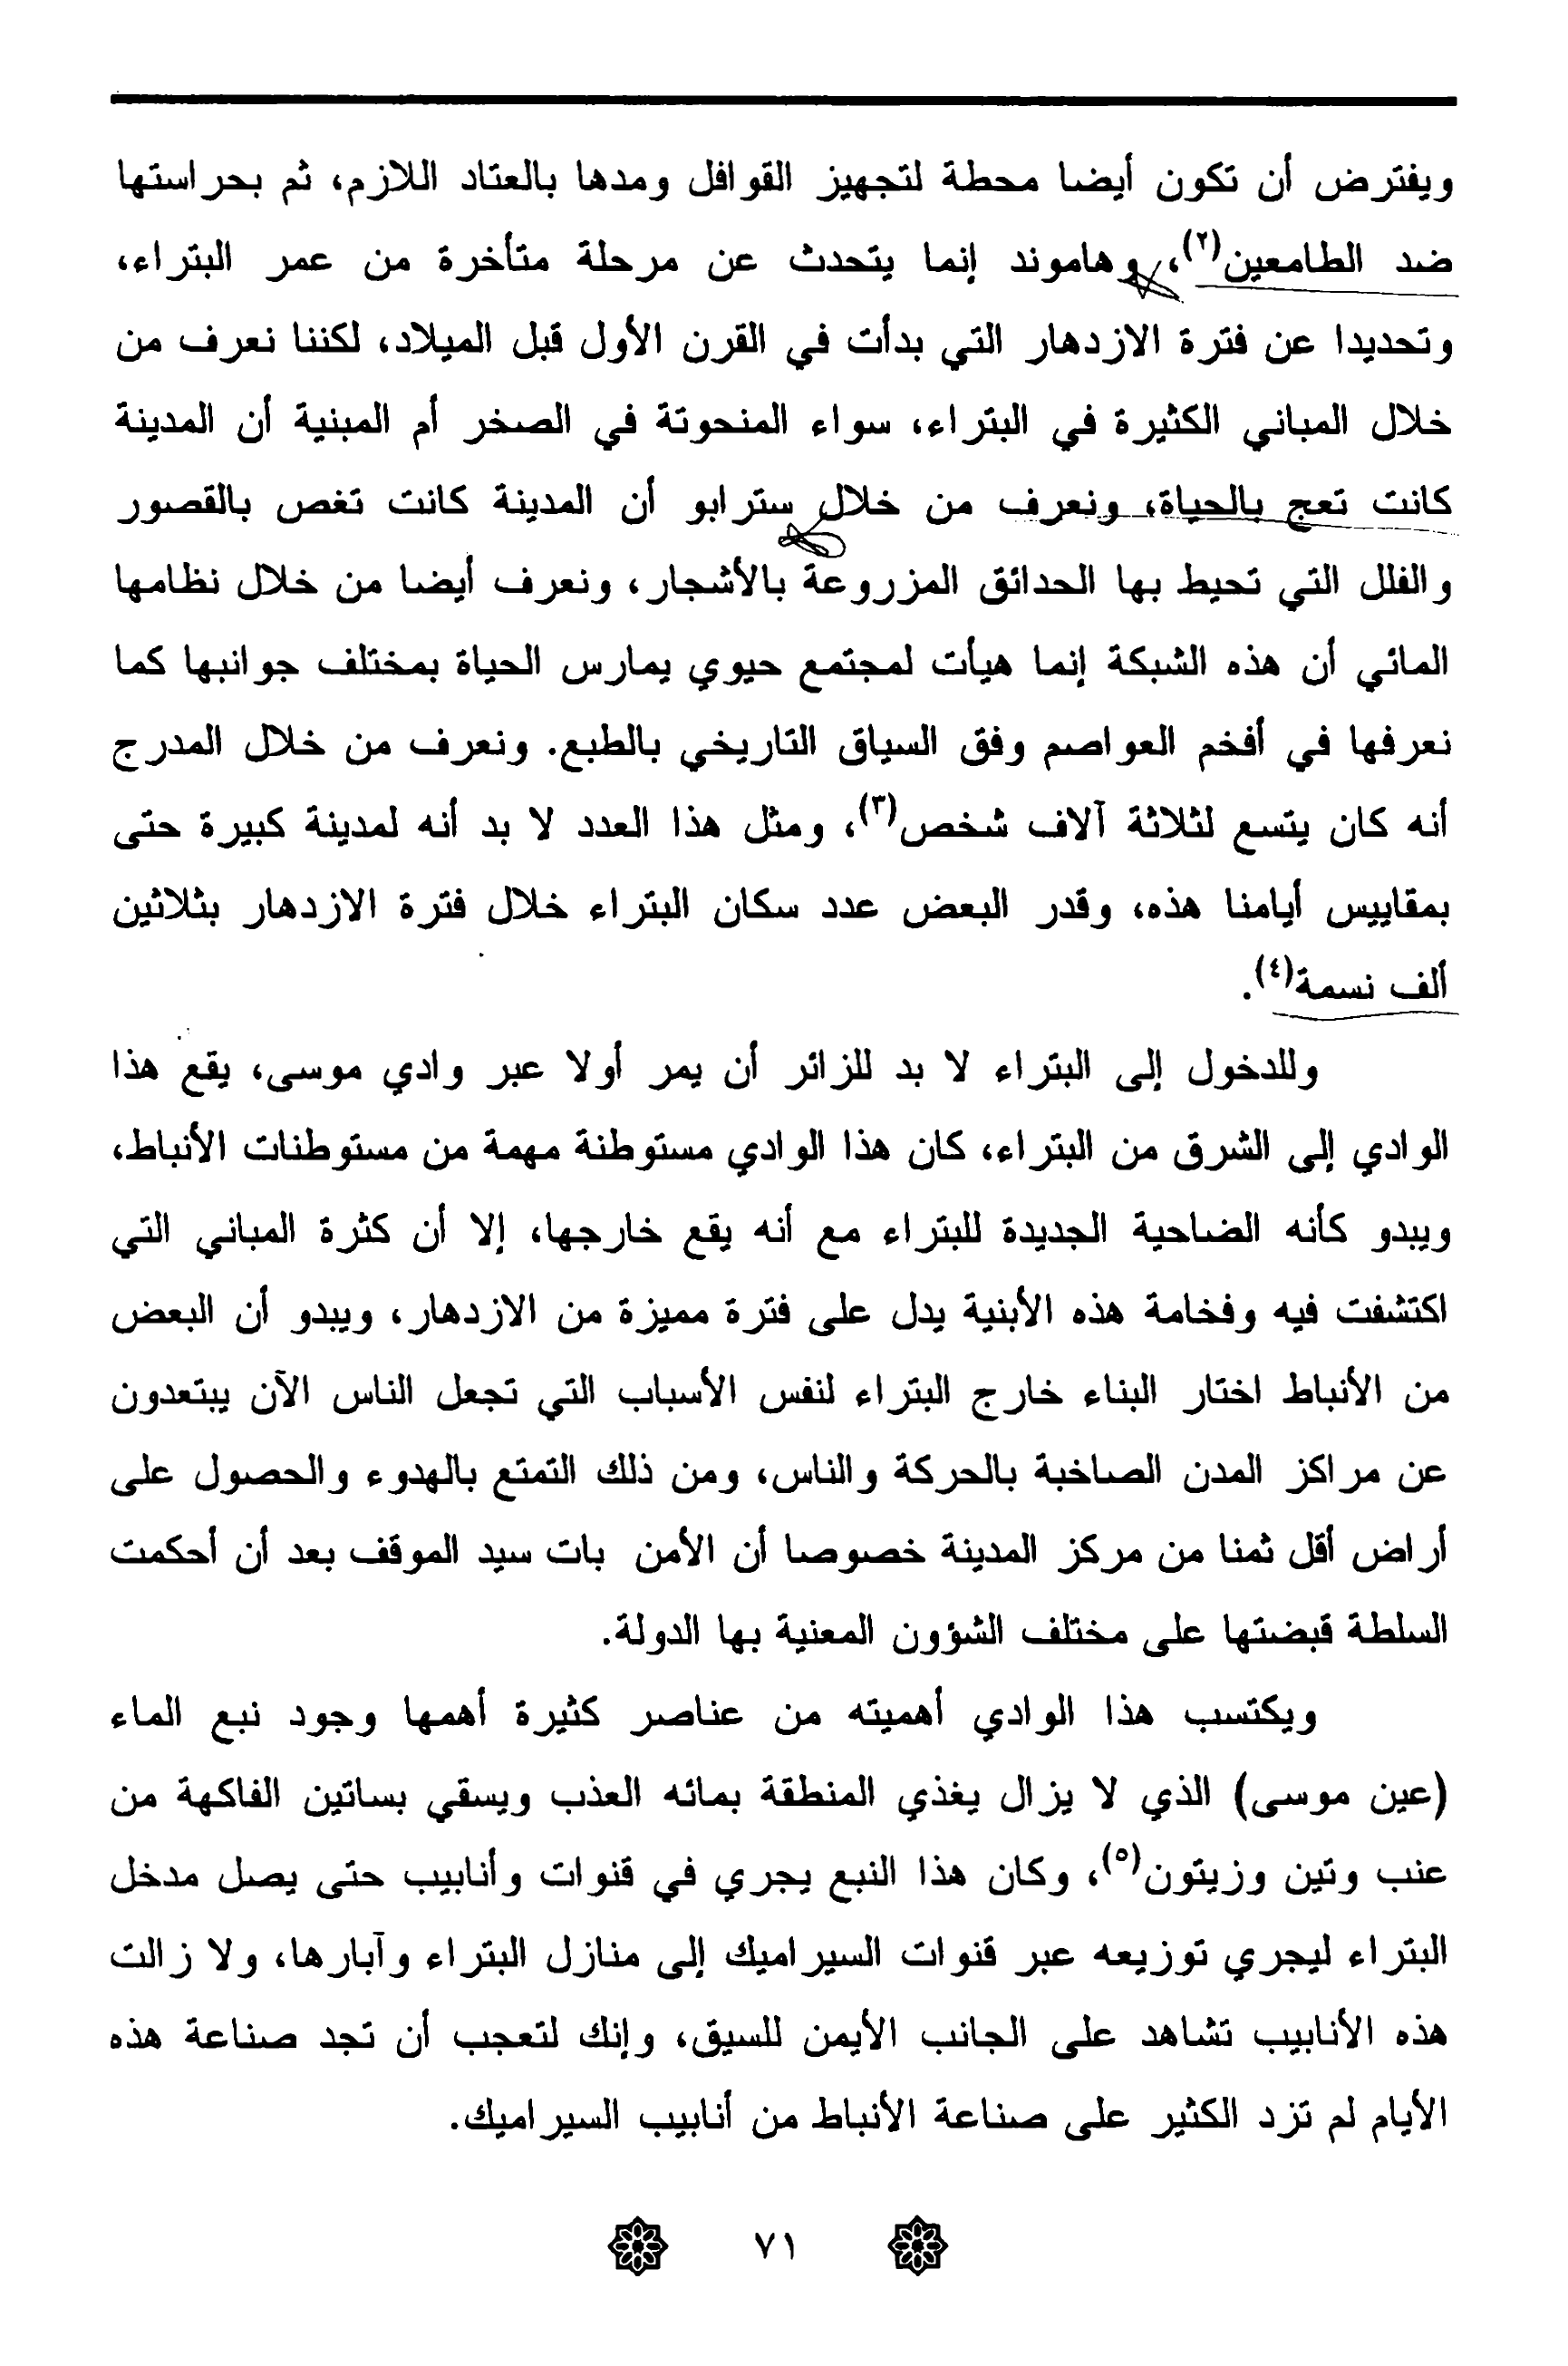 ويفترض أن تكون أيضا محطة لتجهيز القوافل ومدها بالعتاد اللازم، ثم بحراستها
ضد الطامعين(٢)، وهاموند إنما يتحدث عن مرحلة متأخرة من عمر البتراء،
وتحديدا عن فترة الازدهار التي بدأت في القرن الأول قبل الميلاد، لكننا نعرف من
خلال المباني الكثيرة في البتراء، سواء المنحوتة في الصخر أم المبنية أن المدينة
كانت تعج بالحياة، ونعرف من خلال سترابو أن المدينة كانت تغص بالقصور
والفلل التي تحيط بها الحدائق المزروعة بالأشجار، ونعرف أيضا من خلال نظامها
المائي أن هذه الشبكة إنما هيأت لمجتمع حيوي يمارس الحياة بمختلف جوانبها كما
نعرفها في أفخم العواصم وفق السياق التاريخي بالطبع. ونعرف من خلال المدرج
أنه كان يتسع لثلاثة آلاف شخص(٣)، ومثل هذا العدد لا بد أنه لمدينة كبيرة حتى
بمقاييس أيامنا هذه، وقدر البعض عدد سكان البتراء خلال فترة الازدهار بثلاثين
ألف نسمة(٤).
وللدخول إلى البتراء لا بد للزائر أن يمر أولا عبر وادي موسى، يقع هذا
الوادي إلى الشرق من البتراء، كان هذا الوادي مستوطنة مهمة من مستوطنات الأنباط،
ويبدو كأنه الضاحية الجديدة للبتراء مع أنه يقع خارجها، إلا أن كثرة المباني التي
اكتشفت فيه وفخامة هذه الأبنية يدل على فترة مميزة من الازدهار، ويبدو أن البعض
من الأنباط اختار البناء خارج البتراء لنفس الأسباب التي تجعل الناس الآن يبتعدون
عن مراكز المدن الصاخبة بالحركة والناس، ومن ذلك التمتع بالهدوء والحصول على
أراض أقل ثمنا من مركز المدينة خصوصا أن الأمن بات سيد الموقف بعد أن أحكمت
السلطة قبضتها على مختلف الشؤون المعنية بها الدولة.
ويكتسب هذا الوادي أهميته من عناصر كثيرة أهمها وجود نبع الماء
(عين موسى) الذي لا يزال يغذي المنطقة بمائه العذب ويسقي بساتين الفاكهة من
عنب وتين وزيتون(٥)، وكان هذا النبع يجري في قنوات وأنابيب حتى يصل مدخل
البتراء ليجري توزيعه عبر قنوات السيراميك إلى منازل البتراء وآبارها، ولا زالت
هذه الأنابيب تشاهد على الجانب الأيمن للسيق، وإنك لتعجب أن تجد صناعة هذه
الأيام لم تزد الكثير على صناعة الأنباط من أنابيب السيراميك.
٧١